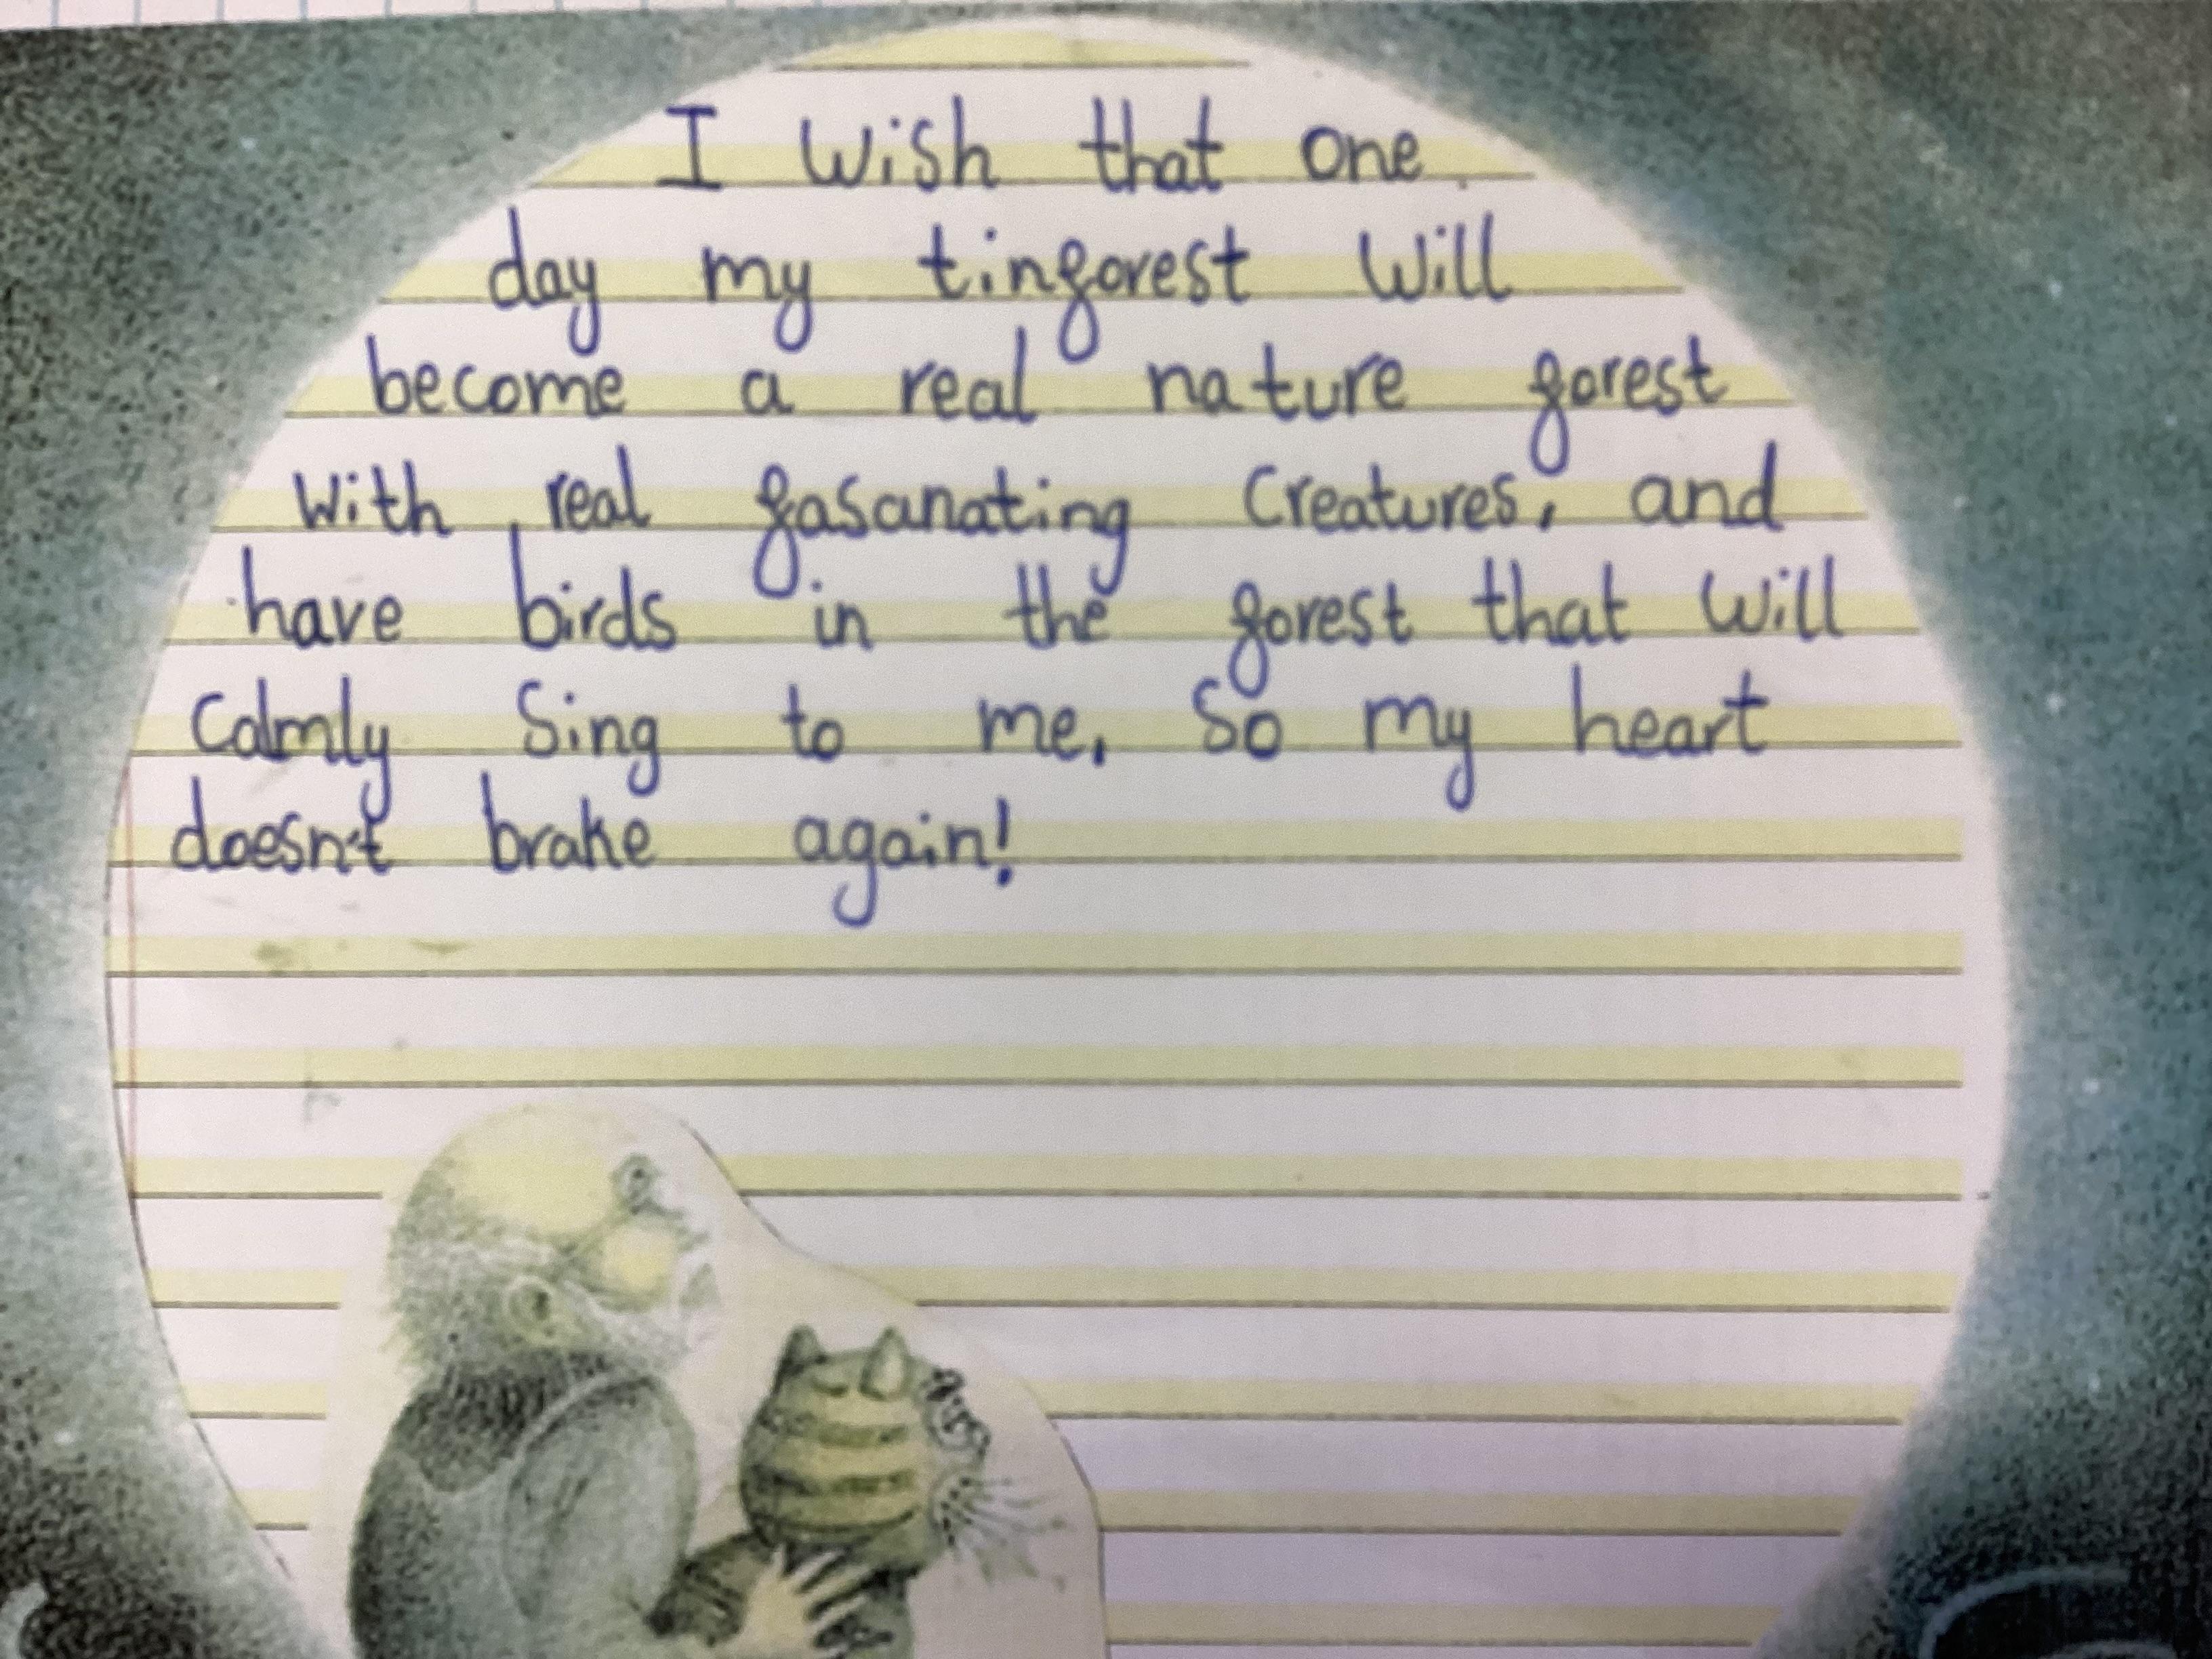 I wish that one
day my tinforest will
become a real nature forest
with real fasanating creatures, and
have birds in the forest that will
calmly sing to me, so my heart
doesn't brake again!